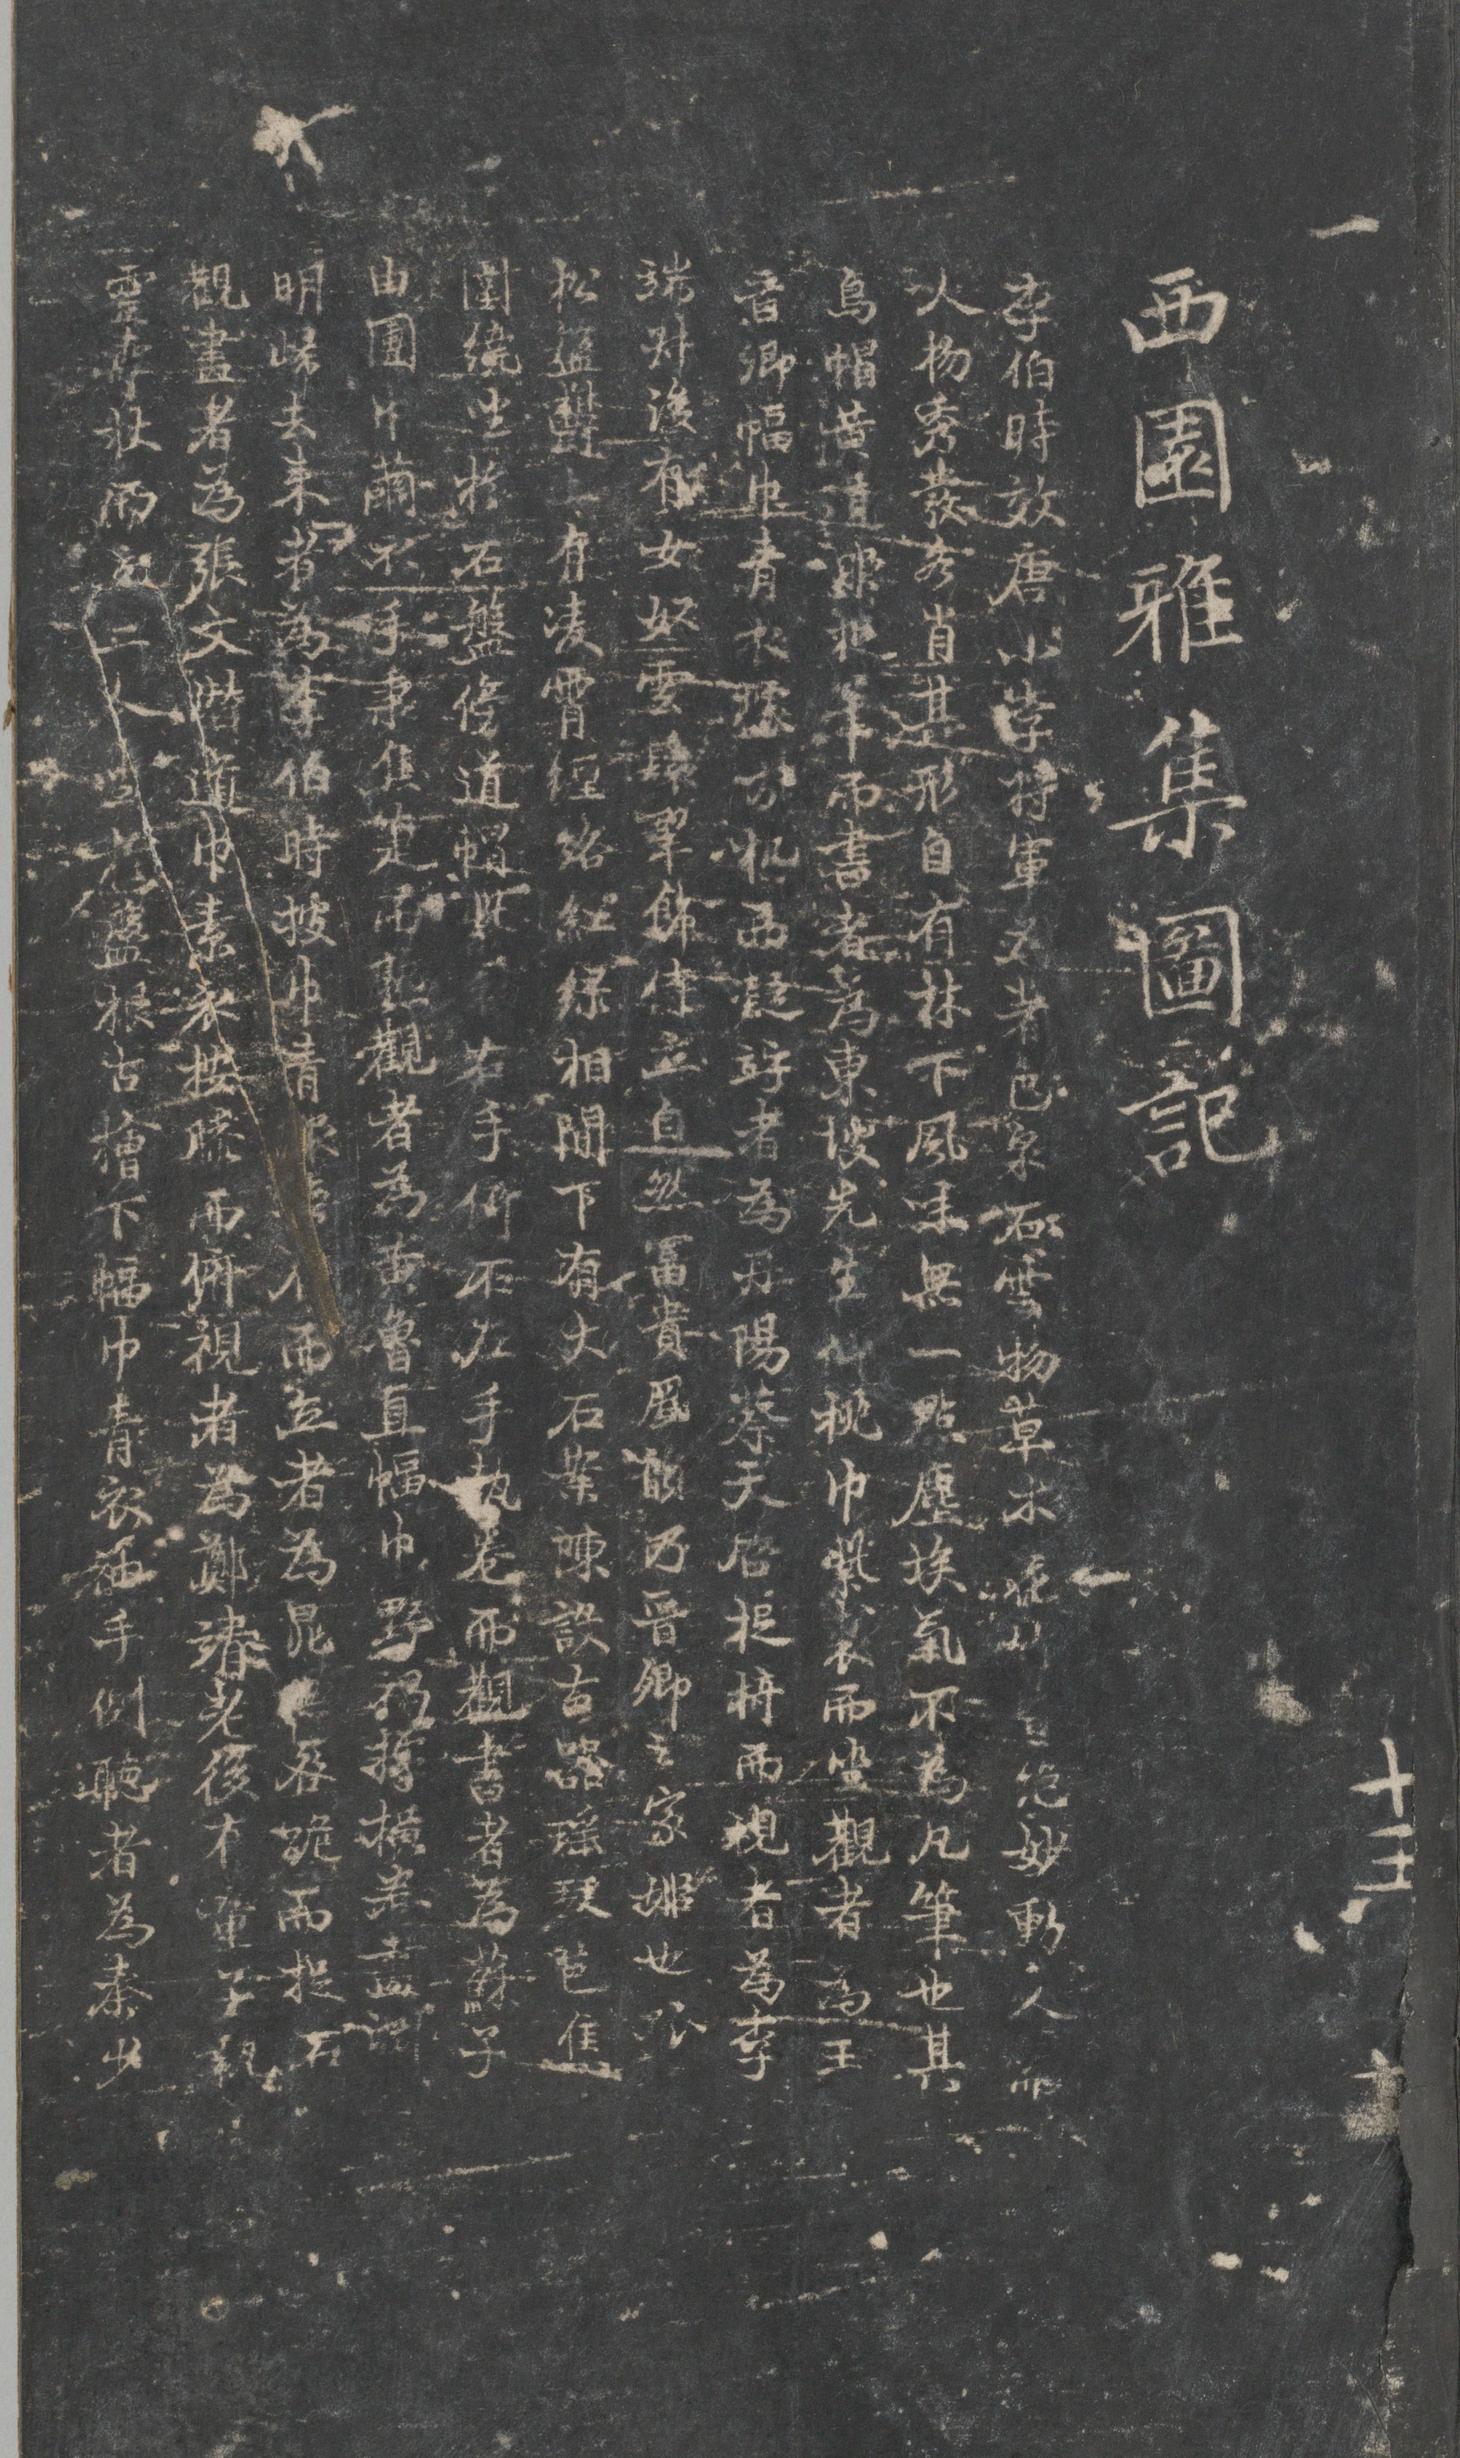 西園雅集圖記
李伯時效唐小李將軍為著色泉石雲物草木花竹皆絕妙動人而
人物秀發各肖其形自有林下風味無一點塵埃氣不為凡筆也其
烏帽黃道服捉筆而書者為東坡先生仙桃巾紫衣而坐觀者為王
晉卿幅巾青衣據方机而凝竚者為丹陽蔡天啓捉椅而視者為李
端叔後有女奴雲鬟翠飾侍立自然富貴風韻乃晉卿之家姬也孤
松盤鬱上有凌霄纏絡紅綠相間下有大石案陳設古器瑤琴芭蕉
圍繞坐於石盤傍道帽紫衣右手倚石左手執卷而觀書者為蘇子
由團巾繭衣手秉蕉箑而熟觀者為黃魯直幅巾野褐據橫卷畫淵
明歸去來者為李伯時披巾青服撫肩而立者為晁無咎跪而捉石
觀畫者為張文潛道巾素衣按膝而俯視者為鄭靖老後有童子執
靈壽杖而立二人坐於盤根古檜下幅巾青衣袖手側聽者為秦少
十五